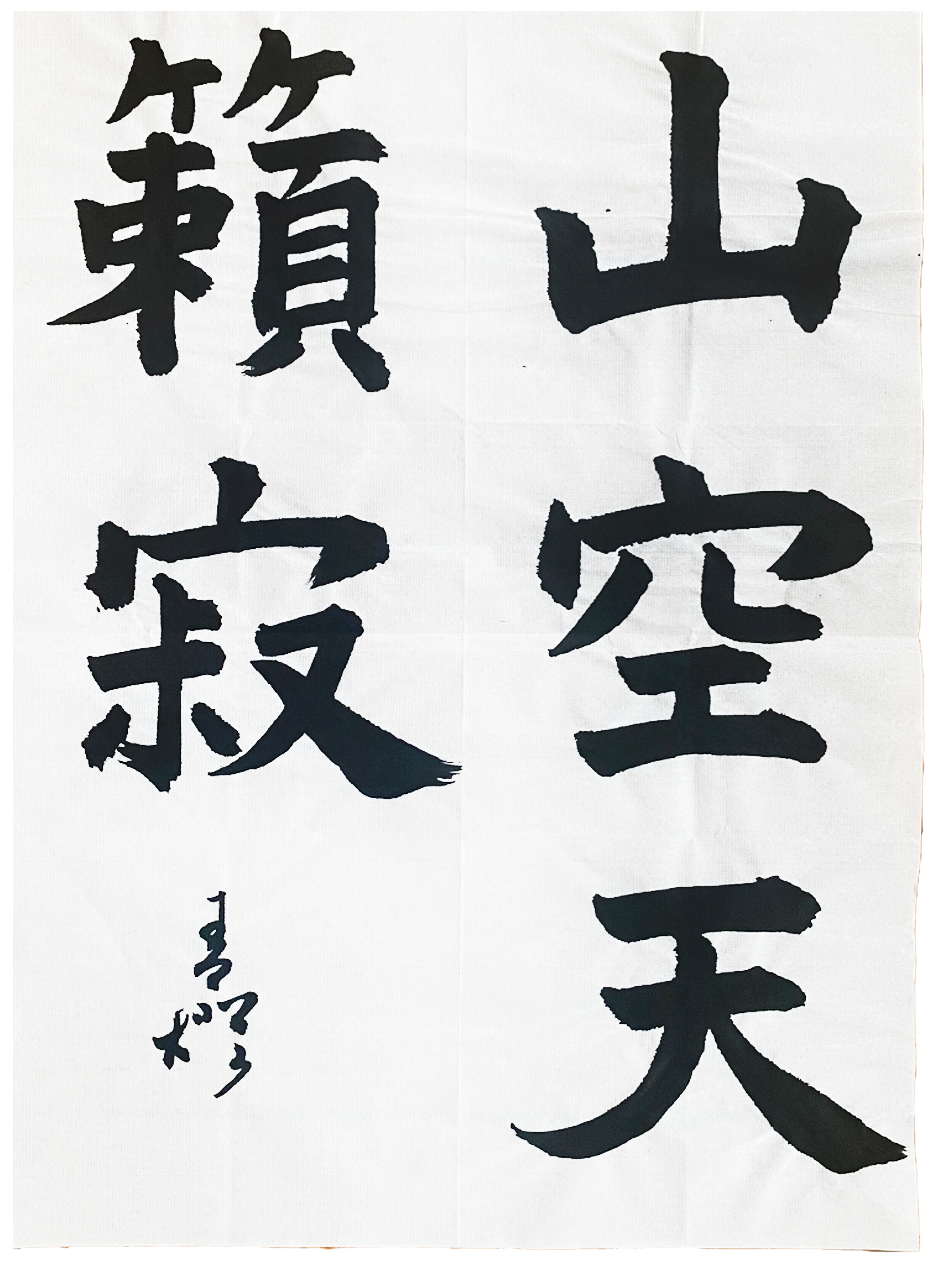 山空天
籟寂
青